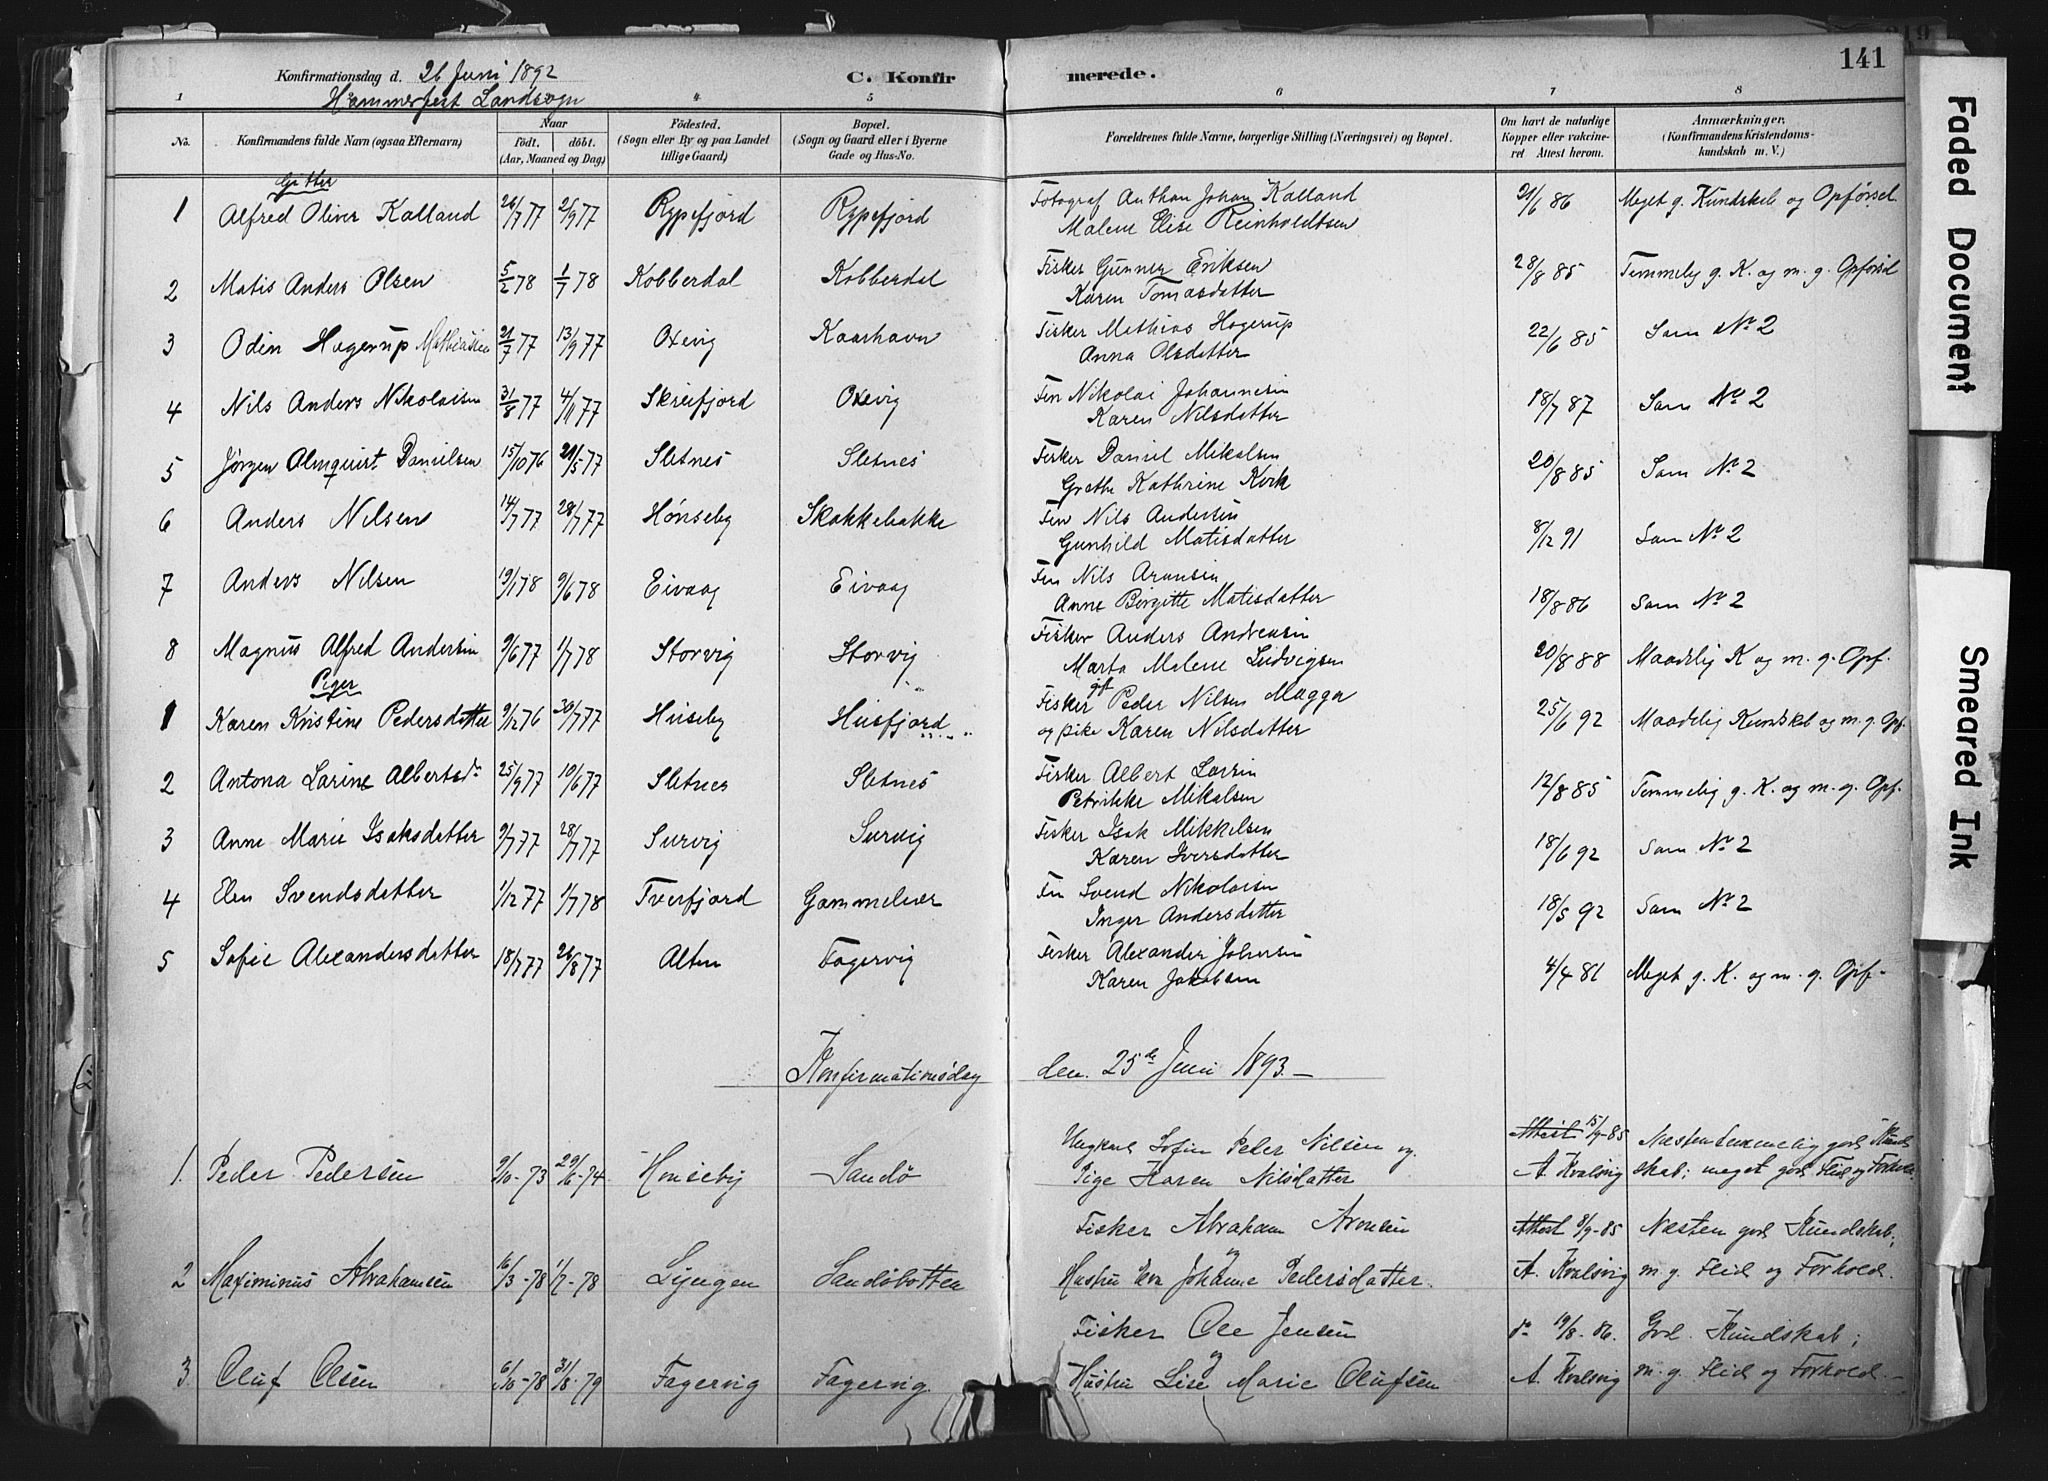 141
Konfirmationsdag d. 26 Juni 1892 C. Konfir merede.
Hammerfest Landsogn
1 4 5 6 7 8
No. Konfirmandens fulde Navn (ogsaa Efternavn) Naar født. døbt. (Aar, Maaned og Dag) Fødested. (Sogn eller By og paa Landet tillige Gaard) Bopæl. (Sogn og Gaard eller i Byerne Gade og Hus-No. Forældrenes fulde Navne, borgerlige Stilling (Næringsvei) og Bopæl. Om havt de naturlige Kopper eller vakcineret Attest herom. Anmærkninger. (Konfirmandens Kristendomskundskab m. V.)
Gutter
1 Alfred Oliver Kalland 26/7 77 2/9 77 Rypefjord Rypefjord Fotograf Anthon Johan Kalland 21/6 86 Meget g. Kundskab og Opførsel
Malene Elise Reinholdtsen
2 Matis Anders Olsen 5/2 78 1/7 78 Kobberdal Kobberdal Fisker Gunner Eriksen 28/8 85 Temmelig g. K. og m. g. Opførsel
Karen Tomasdatter
3 Odin Hagerup Mathiassen 21/7 77 13/9 77 Oxevig Kaarhavn Fisker Mathias Hagerup 22/6 85 Som No 2
Anna Olsdatter
4 Nils Anders Nikolaisen 31/8 77 4/11 77 Skreifjord Oxevig Fin Nikolai Johannesen 18/7 87 Som No 2
Karen Nilsdatter
5 Jørgen Almquist Danielsen 15/10 76 21/5 77 Sletnes Sletnes Fisker Daniel Mikalsen 20/8 85 Som No 2
Grethe Kathrine Kirk
6 Anders Nilsen 14/7 77 28/7 77 Hønseby Skakkebakke Fin Nils Andersen 8/12 91 Som No 2
Gunhild Matisdatter
7 Anders Nilsen 19/1 78 9/6 78 Eivaag Eivaag Fin Nils Aronsen 18/8 86 Som No 2
Anne Birgitte Matisdatter
8 Magnus Alfred Andersen 9/6 77 1/7 78 Storvig Storvig Fisker Anders Andreasen 20/8 88 Maadelig K og m. g. Opf.
Marta Malene Ludvigsen
Piger
1 Karen Kristine Pedersdatter 9/12 76 30/7 77 Husfjord Fisker gft Peder Nilsen Magga 25/6 92 Maadelig Kundskab og m. g. Opf.
og pike Karen Nilsdatter
2 Antona Larine Albertsdr 25/9 77 10/6 77 Sletnes Sletnes Fisker Albert Larsen 12/8 85 Temmelig g. K. og m. g. Opf.
Petrikke Mikalsen
3 Anne Marie Isaksdatter 9/7 77 28/7 77 Survig Survig Fisker Isak Mikkelsen 18/6 92 Som No 2
Karen Iversdatter
4 Elen Svendsdatter 1/12 77 1/7 78 Tverfjord Gammelvær Fin Svend Nikolaisen 18/5 92 Som No 2
Inger Andersdatter
5 Sofie Alexandersdatter 18/7 77 26/8 77 Alten Fagervig Fisker Alexander Johnsen 4/4 81 Meget g. K. og m. g. Opf.
Karen Jakobsen
Konfirmationsdag den 25de Juni 1893.
1. Peder Pedersen 9/10-73 29/6-74 Honseby Sandø Ungkarl Sofin Peder Nilsen og Attest 15/9-85 Næsten temmelig god Kund
Pige Karen Nilsdatter A. Kvalsvig skab; meget god Flid og Forhold
2 Maximinus Abrahamsen 16/3-78 1/7-78 Lyngen Sandøbotten Fisker Abraham Aronsen og Attest 8/9-85 Næsten god Kundskab;
Hustru Eva Johanne Pedersdatter. A. Kvalsvig m. g. Flid og Forhold.
3 Oluf Olsen 6/10-78 31/8-79 Fagervig Fagervig. Fisker Ole Jensen og do 19/8-86. God Kundskab;
Hustru Lise Marie Olufsen A. Kvalsvig m. g. Flid og Forhold.
Faded Document
Smeared Ink